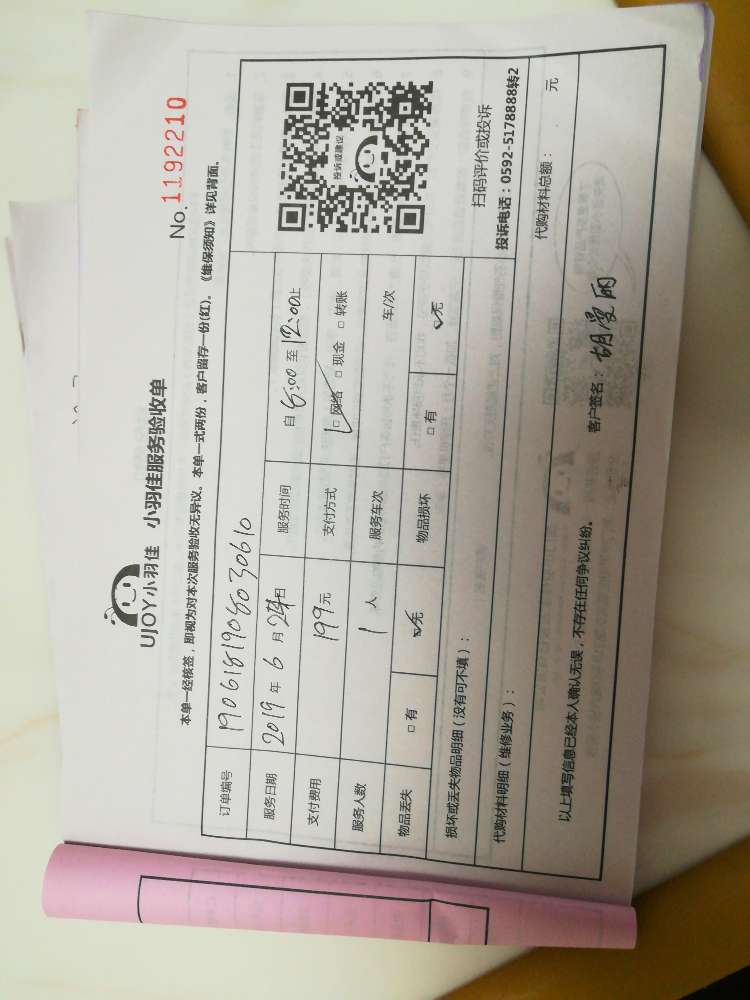 No. 1192210
UJOY小羽佳 小羽佳服务验收单
本单一经核签，即视为对本次服务验收无异议。本单一式两份，客户留存一份(红)。《维保须知》详见背面。
订单编号 190618190803 0610
服务日期 2019 年 6 月 24 日 服务时间 自 8:00 至 12:00止
支付费用 199 元 支付方式 □ 网络 □ 现金 □ 转账
服务人数 1 人 服务车次 车/次
物品丢失 □ 有 ☑ 无 物品损坏 □ 有 ☑ 无
投诉或建议
扫码评价或投诉
投诉电话：0592-5178888转2
损坏或丢失物品明细（没有可不填）：
代购材料明细（维修业务）： 代购材料总额： 元
以上填写信息已经本人确认无误，不存在任何争议纠纷。 客户签名：胡曼丽